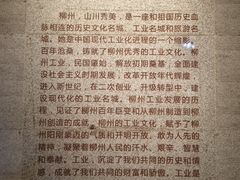 柳州，山川秀美，是一座和祖国历史血
脉相连的历史文化名城、工业名城和旅游名
城。她是中国现代工业化进程的一个缩影。
百年沧桑，铸就了柳州优秀的工业文化。柳
州工业，民国肇始，解放初期奠基，全面建
设社会主义时期发展，改革开放年代辉煌，
进入新世纪，在二次创业，升级转型中，建
设现代化的工业名城。柳州工业发展的历
程，见证了柳州百年巨变和从柳州制造到柳州
创造的成就。柳州的工业文化，赋予了柳
州阳刚豪迈的气质和开明开放、敢为人先的
精神；凝聚着柳州人民的汗水、艰辛、智慧
和奉献。工业，沉淀了我们共同的历史和情
感，成就了我们共同的财富和骄傲。工业是